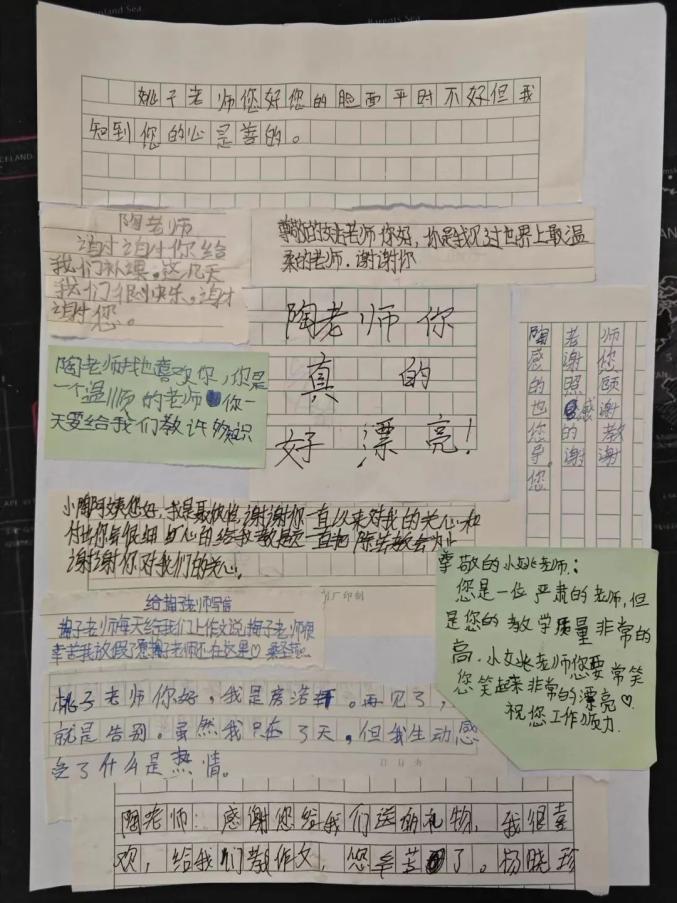 桃子老师您好您的脸面平时不好但我
知到您的心是善的。
陶老师
谢谢你给
我们补课。这几天
我们很快乐。谢
谢您。
尊敬的老师你好,你是我见过世界上最温
柔的老师.谢谢你
陶老师你
真的
好漂亮!
陶老师我也喜欢你,你是
一个温顺的老师你一
天要给我们教许多知识
陶老师
感谢您
的照顾
也感谢
您的教
导。谢谢
您
小陶阿姨您好.我是,谢谢你一直以来对我的关心和
付出你每很细心的给我教题一直把教会为止
谢谢你对我们的关心.
尊敬的小姚老师:
您是一位严肃的老师,但
是您的教学质量非常的
高.小姚老师您要常笑
您笑起来非常的漂亮♡.
祝您工作顺力.
印制
给老师写信
老师每天给我们上作文说老师很
幸苦我放假了老师还在这里♡
桃子老师你好,我是房浩。再见了,
就是告别。虽然我只在了天,但我生动感
受了什么是热情。
陶老师:感谢您给我们送的礼物,我很喜
欢,给我们教作文,您辛苦了。杨晓珍